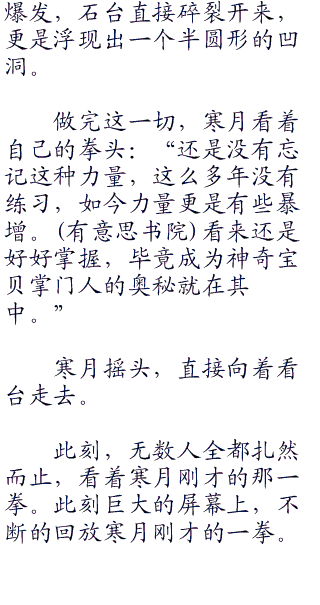 爆发，石台直接碎裂开来，
更是浮现出一个半圆形的凹
洞。
做完这一切，寒月看着
自己的拳头：“还是没有忘
记这种力量，这么多年没有
练习，如今力量更是有些暴
增。(有意思书院)看来还是
好好掌握，毕竟成为神奇宝
贝掌门人的奥秘就在其
中。”
寒月摇头，直接向着看
台走去。
此刻，无数人全都扎然
而止，看着寒月刚才的那一
拳。此刻巨大的屏幕上，不
断的回放寒月刚才的一拳。